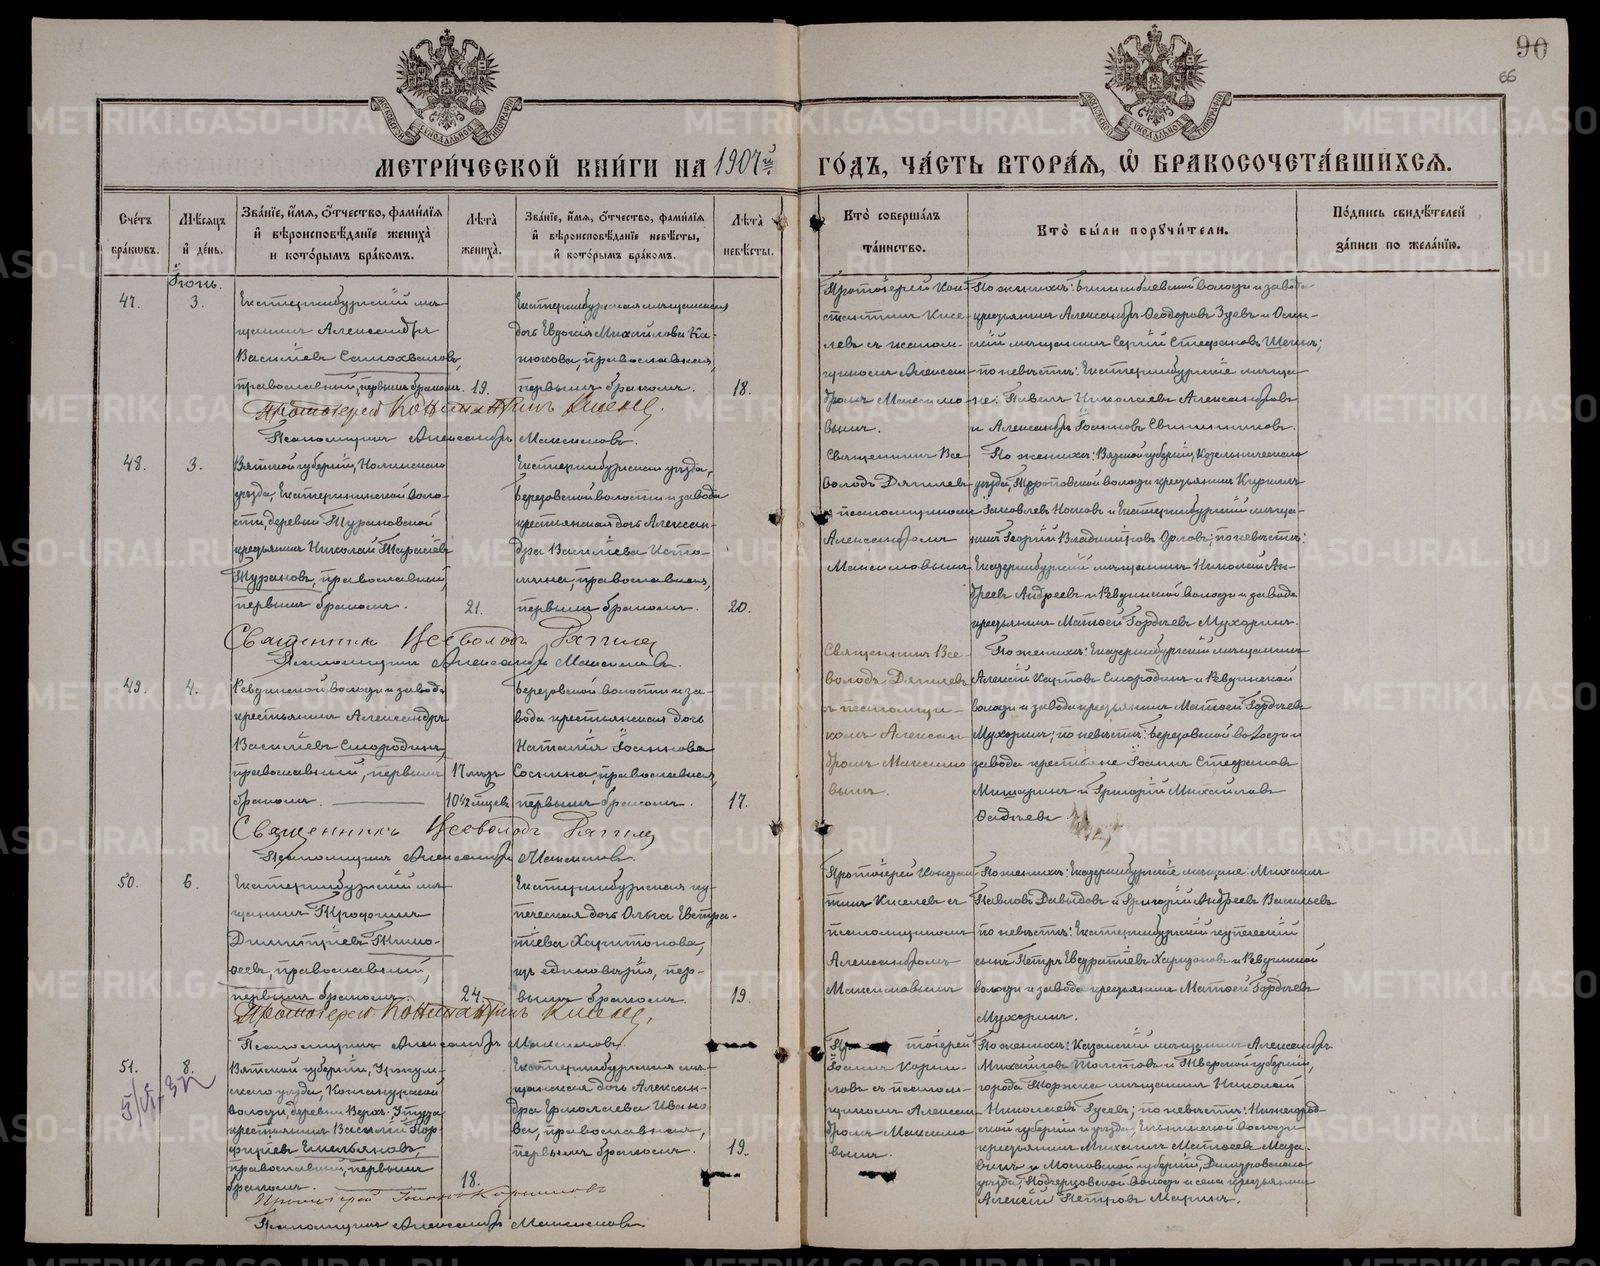 90
66
МОСКОВСКОЙ СѴНОДАЛЬНОЙ ТИПОГРАФІИ
МЕТРИ́ЧЕСКОЙ КНИ́ГИ НА 1907й ГО́ДЪ, ЧА́СТЬ ВТОРА́Я, Ѡ БРАКОСОЧЕТА́ВШИХСЯ.
Сче́тъ бра́ковъ.
Мѣ́сяцъ и́ де́нь.
Зва́нїе, и́мя, о́тчество, фами́лїя и́ вѣроисповѣ́данїе жениха̀ и кото́рымъ бра́комъ.
Лѣ́та жениха̀.
Зва́нїе, и́мя, о́тчество, фами́лїя и́ вѣроисповѣ́данїе невѣ́сты, и́ кото́рымъ бра́комъ.
Лѣ́та невѣ́сты.
Кто̀ соверша́лъ та́инство.
Кто̀ бы́ли порꙋчи́тели.
По́дпись свидѣ́телей за́писи по жела́нїю.
Іюнь.
47.
3.
Екатеринбургскій мѣ-
щанинъ Александръ
Васильевъ Самохваловъ,
православный, первымъ бракомъ.
19.
Екатеринбургская мѣщанская
дочь Евдокія Михайлова Ка-
нюкова, православная,
первымъ бракомъ.
18.
Протоіерей Кон-
стантинъ Кисе-
левъ съ псалом-
щикомъ Алексан-
дромъ Максимо-
вымъ.
По женихѣ: Билимбаевской волости и завода
крестьянинъ Александръ Ѳеодоровъ Зуевъ и Осин-
скій мѣщанинъ Сергій Стефановъ
по невѣстѣ: Екатеринбургскіе мѣща-
не: Павелъ Николаевъ Александровъ
и Александръ Іоанновъ Свинниковъ.
Протоіерей Константинъ Киселев.
Псаломщикъ Александръ Максимовъ.
48.
3.
Вятской губерніи, Нолинскаго
уѣзда, Екатерининской воло-
сти, деревни Турановской
крестьянинъ Николай Тарасіевъ
Турановъ, православный,
первымъ бракомъ.
21.
Екатеринбургскаго уѣзда,
Березовской волости и завода
крестьянская дочь Алексан-
дра Васильева Исто-
мина, православная,
первымъ бракомъ.
20.
Священникъ Все-
володъ Дягилевъ
съ псаломщикомъ
Александромъ
Максимовымъ.
По женихѣ: Вятской губерніи, Котельническаго
уѣзда, волости крестьянинъ Кириллъ
Іаковлевъ Носковъ и Екатеринбургскій мѣща-
нинъ Георгій Владиміровъ Орловъ; по невѣстѣ:
Екатеринбургскій мѣщанинъ Николай Ан-
дреевъ Андреевъ и Ревдинской волости и завода
крестьянинъ Матѳей Гордѣевъ Мухоринъ.
Священникъ Всеволодъ Дягилев
Псаломщикъ Александръ Максимовъ.
49.
4.
Ревдинской волости и завода
крестьянинъ Александръ
Васильевъ Смородинъ,
православный, первымъ
бракомъ.
17 лѣтъ
10½ мцевъ
Березовской волости и за-
вода крестьянская дочь
Наталія Іоаннова
Соснина, православная,
первымъ бракомъ.
17.
Священникъ Все-
володъ Дягилевъ
съ псаломщи-
комъ Алексан-
дромъ Максимо-
вымъ.
По женихѣ: Екатеринбургскій мѣщанинъ
Алексій Карповъ Смородинъ и Ревдинской
волости и завода крестьянинъ Матѳей Гордѣевъ
Мухоринъ; по невѣстѣ: Березовской волости и
завода крестьяне Іоаннъ Стефановъ
и Григорій Михайловъ
Священникъ Всеволодъ Дягилев
Псаломщикъ Александръ Максимовъ.
50.
6.
Екатеринбургскій мѣ-
щанинъ Трофимъ
Димитріевъ Тимо-
ѳеевъ, православный,
первымъ бракомъ.
24.
Екатеринбургская ку-
печеская дочь Ольга Евстра-
тіева Харитонова,
изъ единовѣрія, пер-
вымъ бракомъ.
19.
Протоіерей Констан-
тинъ Киселевъ съ
псаломщикомъ
Александромъ
Максимовымъ
По женихѣ: Екатеринбургскіе мѣщане: Михаилъ
Павловъ Давыдовъ и Григорій Андреевъ Васильевъ
по невѣстѣ: Екатеринбургскій купеческій
сынъ Петръ Евстратіевъ Харитоновъ и Ревдинской
волости и завода крестьянинъ Матѳей Гордѣевъ
Мухоринъ.
Протоіерей Константинъ Киселев.
Псаломщикъ Александръ Максимовъ.
51.
8.
Вятской губерніи, Уржум-
скаго уѣзда,
волости, деревни Верх.
крестьянинъ Василій Пор-
фиріевъ Емельяновъ,
православный, первымъ
бракомъ.
18.
Екатеринбургская мѣ-
щанская дочь Алексан-
дра Ермолаева Ивано-
ва, православная,
первымъ бракомъ.
19.
Протоіерей
Іоаннъ Корни-
ловъ съ псалом-
щикомъ Алексан-
дромъ Максимо-
вымъ.
По женихѣ: Казанскій мѣщанинъ Александръ
Михайловъ Толстовъ и Тверской губерніи,
города Торжка мѣщанинъ Николай
Николаевъ Гусевъ; по невѣстѣ: Нижегород-
ской губерніи и уѣзда, Ельнинской волости
крестьянинъ Михаилъ Матѳеевъ Маза-
и Московской губерніи, Дмитровскаго
уѣзда, волости и села крестьянинъ
Алексій Петровъ Маринъ.
Протоіерей Іоаннъ Корниловъ
Псаломщикъ Александръ Максимовъ
METRIKI.GASO-URAL.RU